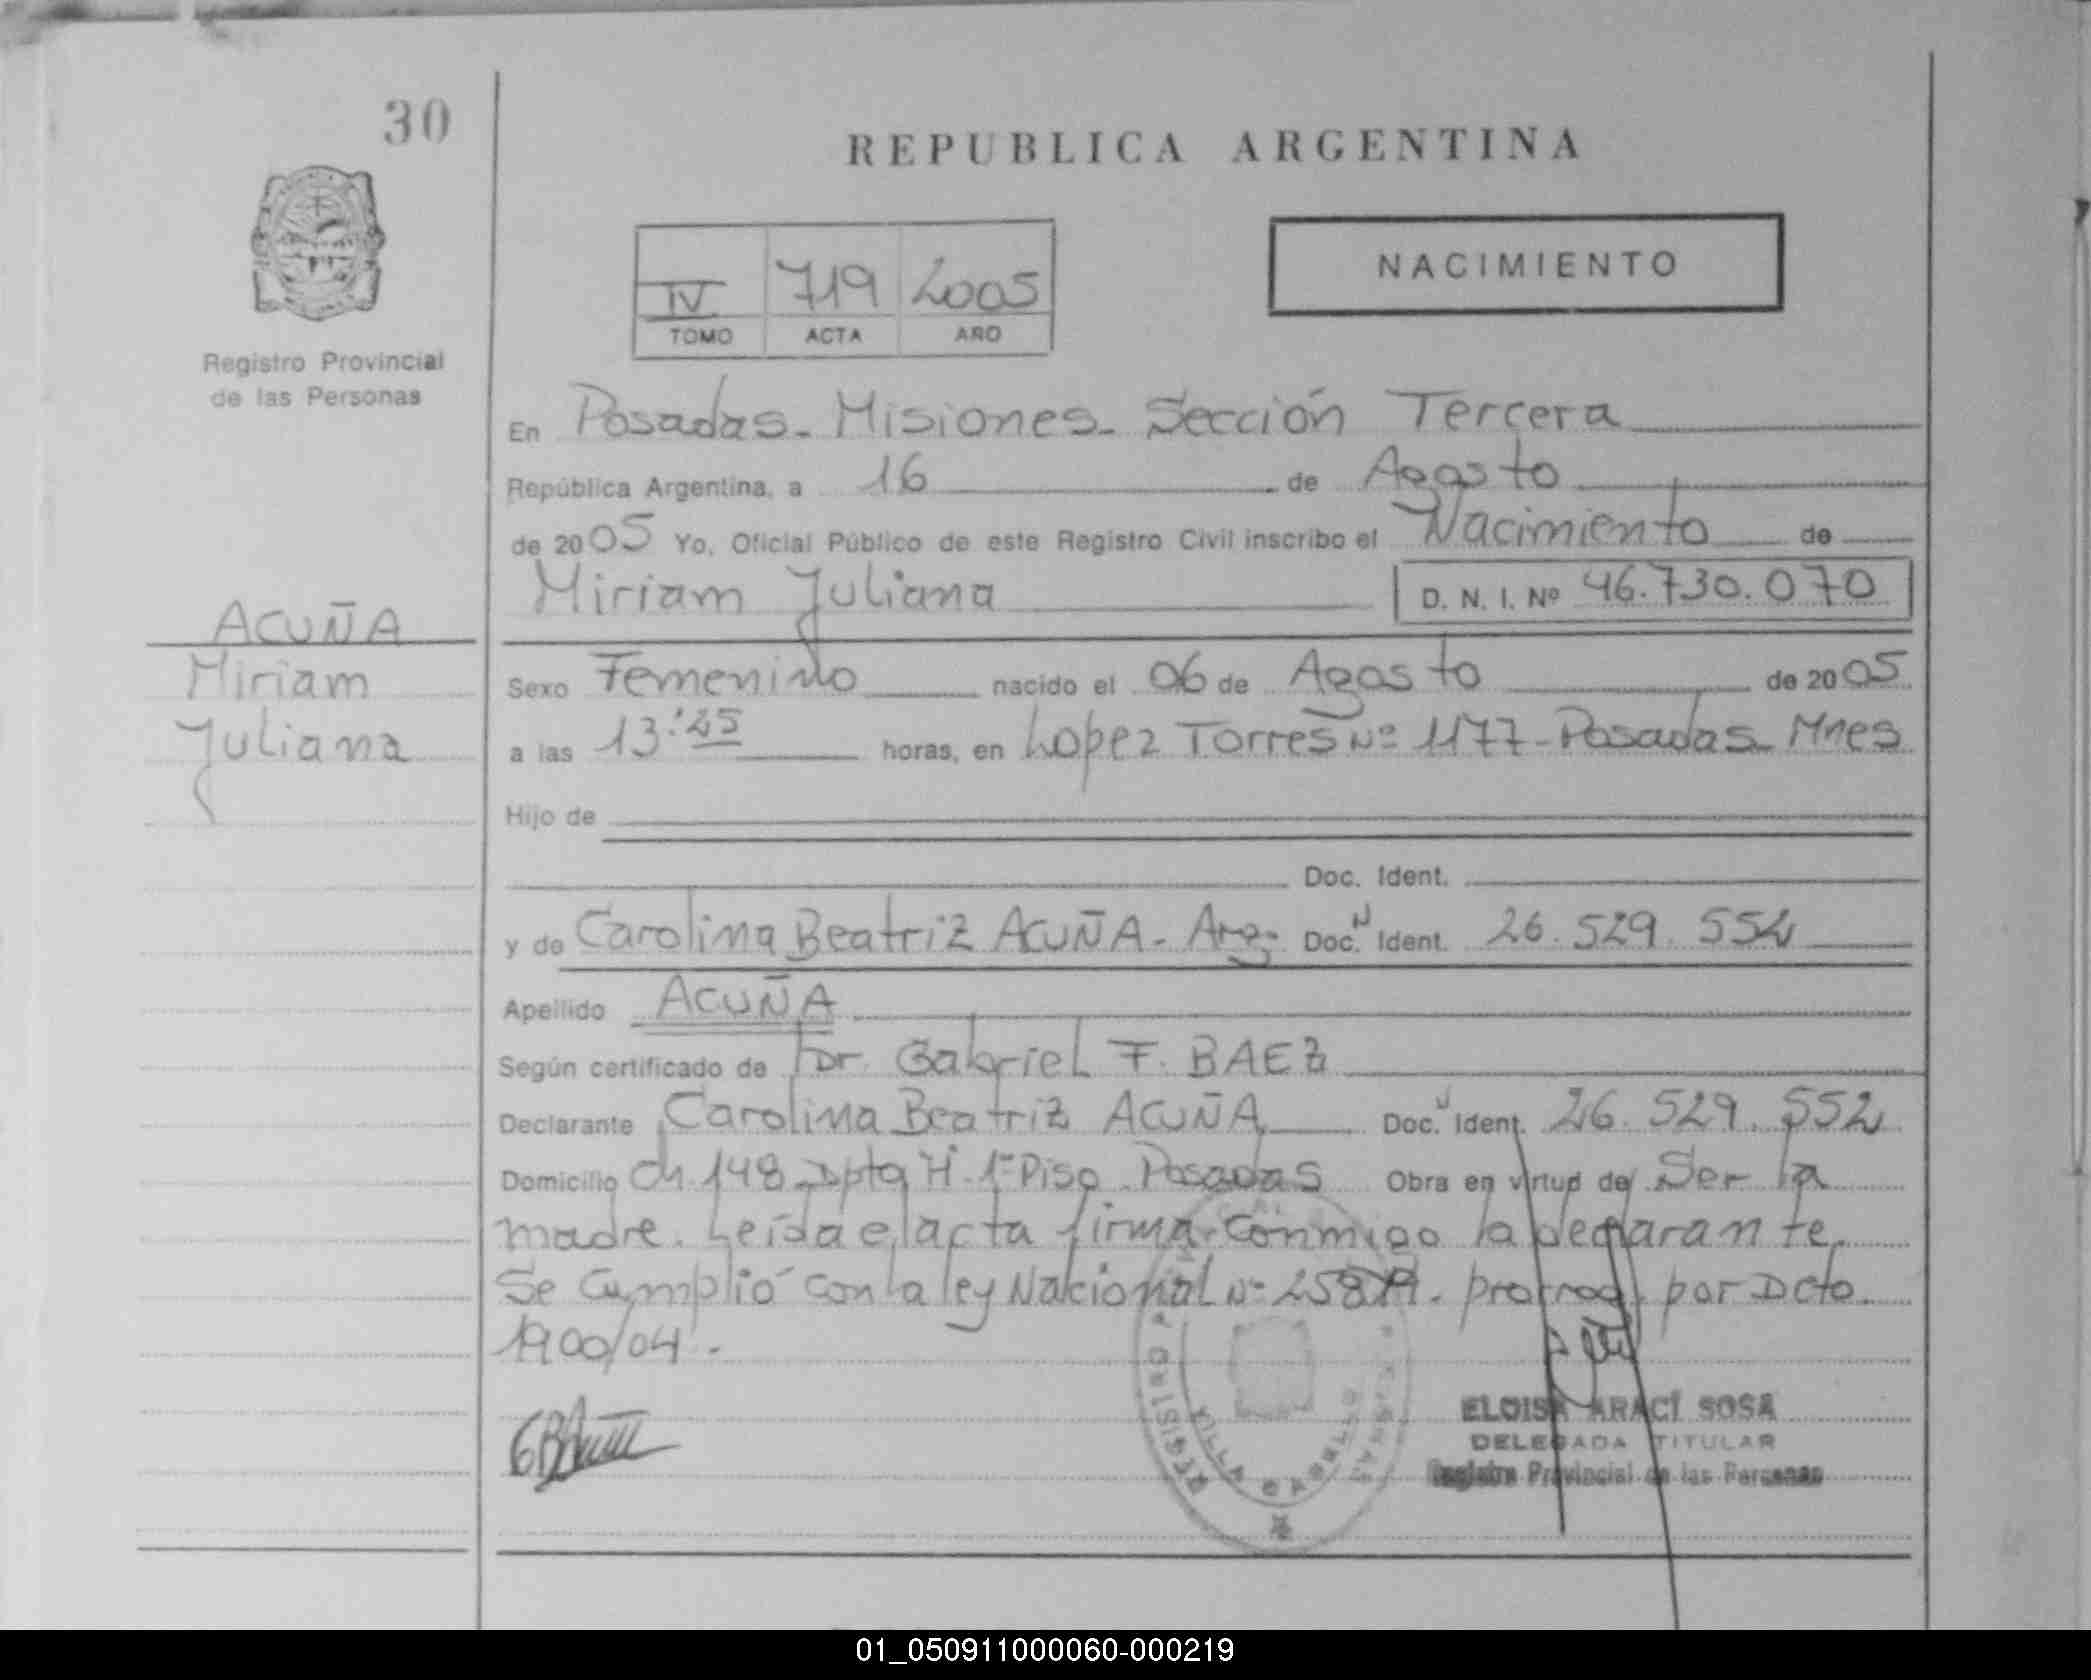 30
REPUBLICA ARGENTINA
NACIMIENTO
IV 719 2005
TOMO ACTA AÑO
Registro Provincial
de las Personas
En Posadas - Misiones - Sección Tercera
República Argentina, a 16 de Agosto
de 2005 Yo, Oficial Público de este Registro Civil inscribo el Nacimiento de
Miriam Juliana D. N. I. Nº 46.730.070
ACUÑA
Miriam
Juliana
Sexo Femenino nacido el 06 de Agosto de 2005
a las 13:25 horas, en Lopez Torres Nº 1177 - Posadas - Mnes
Hijo de
Doc. Ident.
y de Carolina Beatriz ACUÑA - Arg. Doc. N Ident. 26.529.552
Apellido ACUÑA
Según certificado de Dr. Gabriel F. BAEZ
Declarante Carolina Beatriz ACUÑA Doc. Ident. 26.529.552
Domicilio Ch. 148 - Dpto H - 1º Piso - Posadas Obra en virtud de Ser la
madre. Leída el acta firma conmigo la declarante.
Se Cumplió con la ley Nacional Nº 25819. prorrog. por Dcto.
1900/04.-
REGISTRO PROVINCIAL
PERSONAS
VILLA CABELLO
ELOISA ARACÍ SOSA
DELEGADA TITULAR
Registro Provincial de las Personas
01_050911000060-000219